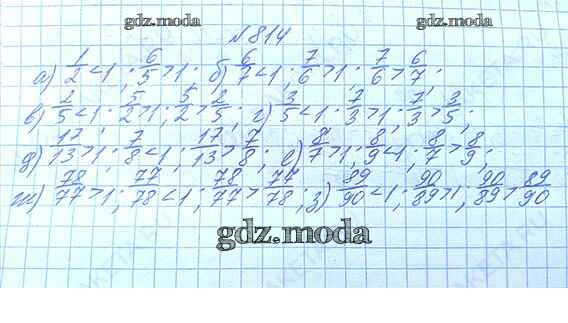 gdz.moda
gdz.moda
№814
а) 1/2 < 1; 6/5 > 1; б) 6/7 < 1; 7/6 > 1; 7/6 > 6/7;
в) 2/5 < 1; 5/2 > 1; 5/2 > 2/5; г) 3/5 < 1; 7/3 > 1; 7/3 > 3/5;
д) 17/13 > 1; 7/8 < 1; 17/13 > 7/8; е) 8/7 > 1; 8/9 < 1; 8/7 > 8/9;
ж) 78/77 > 1; 77/78 < 1; 78/77 > 77/78; з) 89/90 < 1; 90/89 > 1; 90/89 > 89/90
gdz.moda